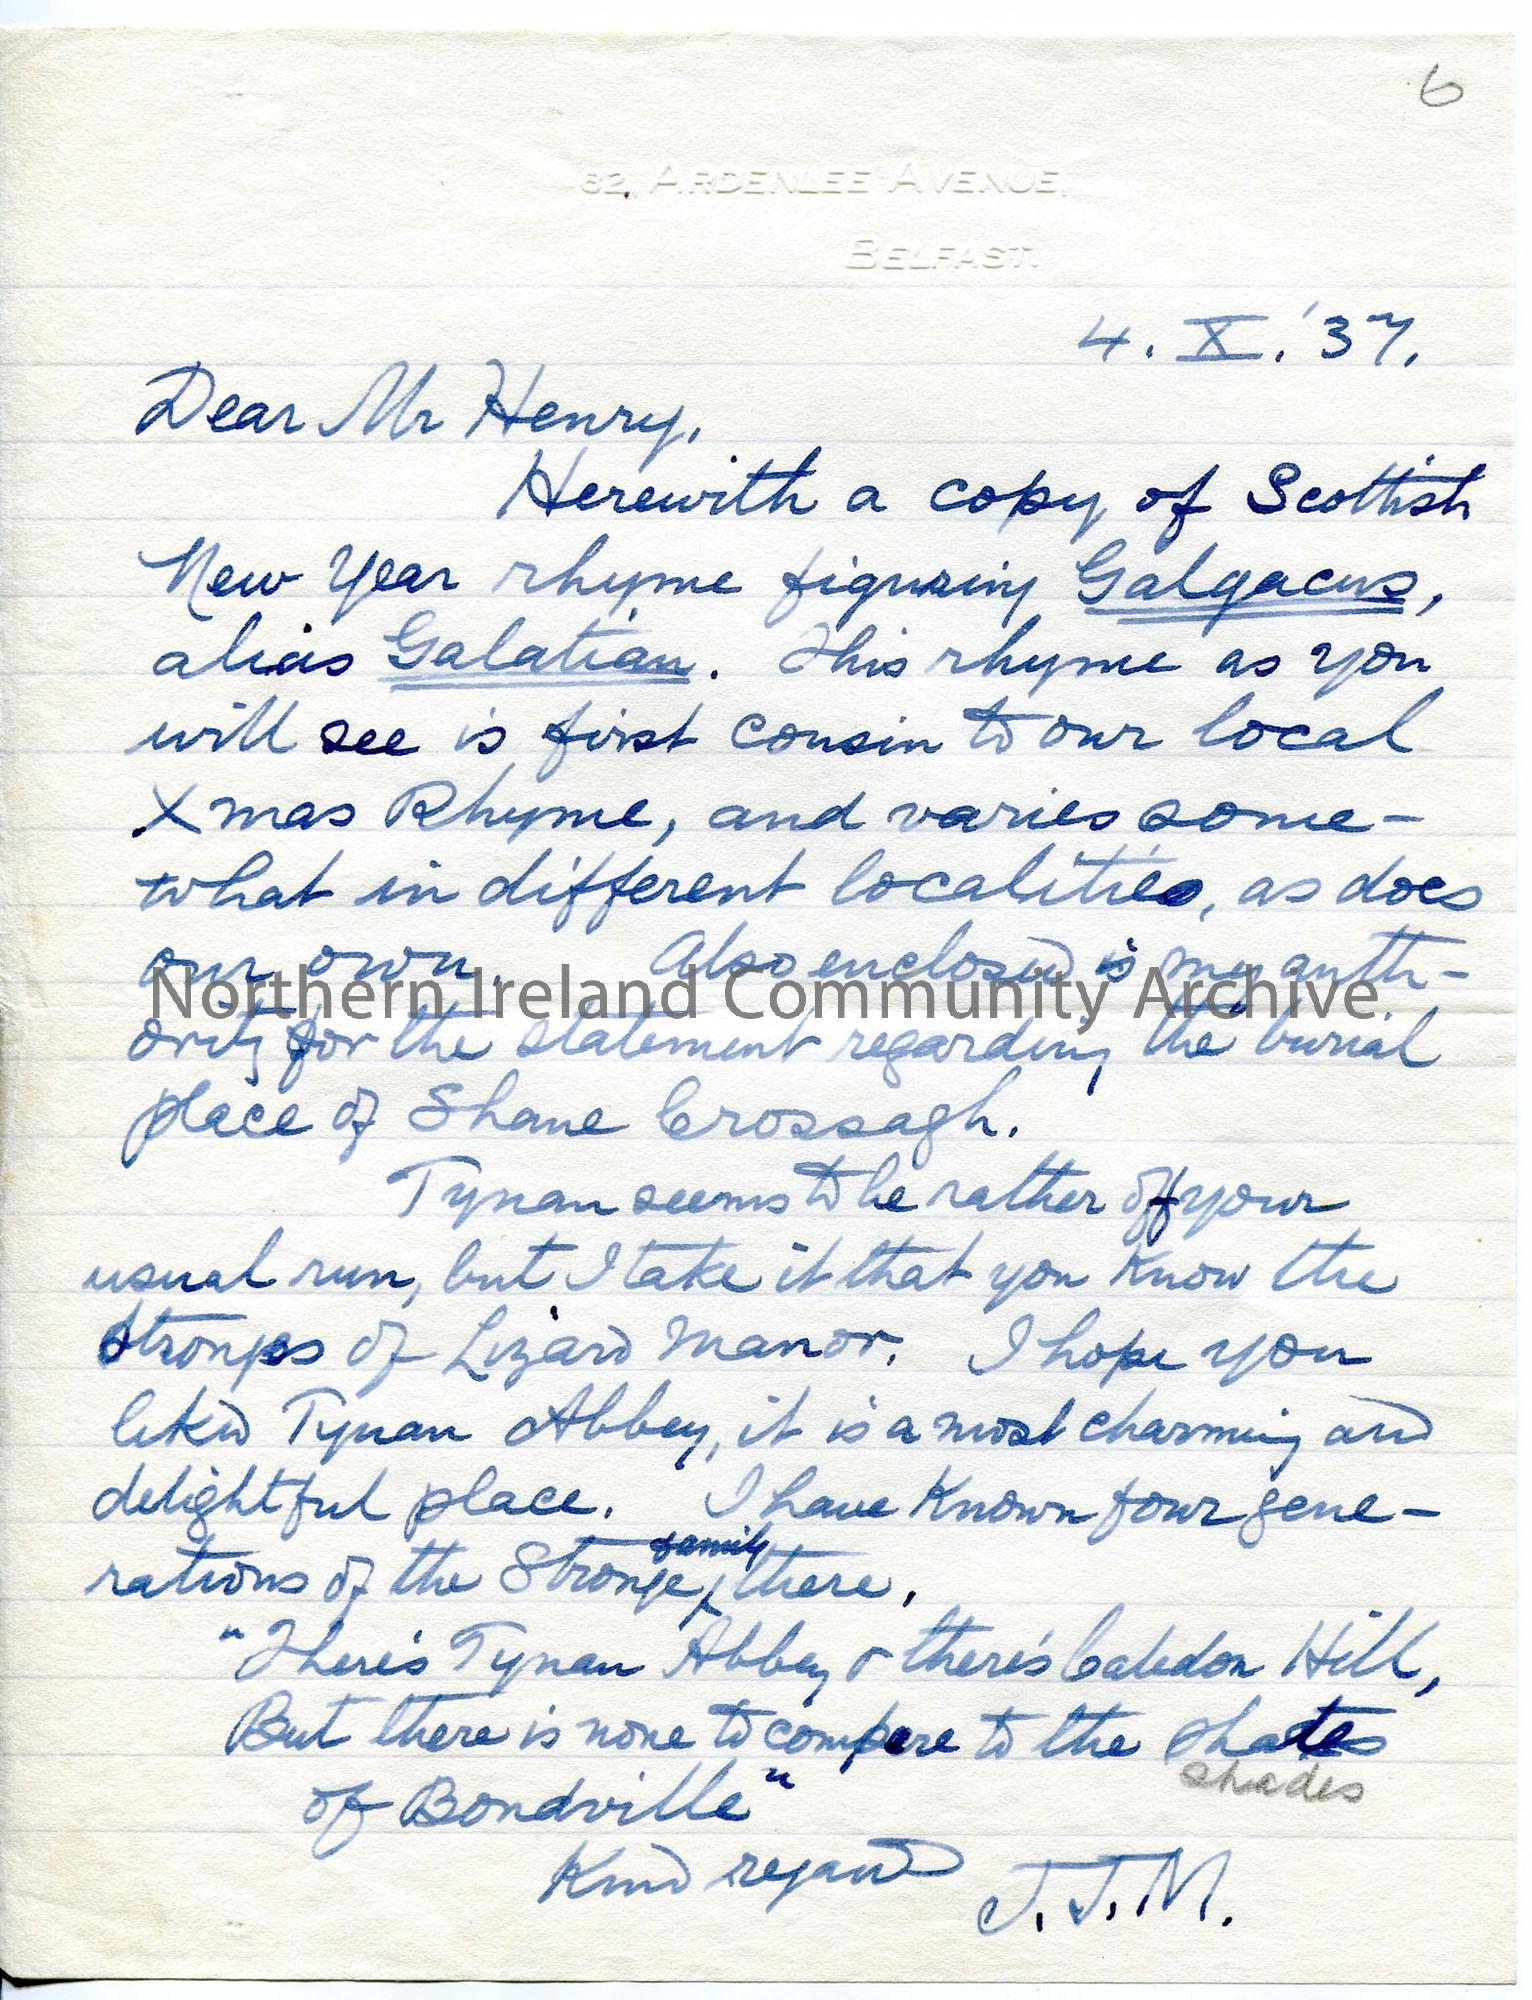 6
62, ARDENLEE AVENUE,
BELFAST.
4. X. '37.
Dear Mr Henry,
Herewith a copy of Scottish
New Year rhyme figuring Galgacus,
alias Galatian. This rhyme as you
will see is first cousin to our local
Xmas Rhyme, and varies some-
what in different localities, as does
our own. Also enclosed is my auth-
Northern Ireland Community Archive
ority for the statement regarding the burial
place of Shane Crossagh.
Tynan seems to be rather off your
usual run, but I take it that you know the
Stronges of Lizard Manor. I hope you
liked Tynan Abbey, it is a most charming and
delightful place. I have known four gene-
rations of the Stronge family there.
"There's Tynan Abbey & there's Caledon Hill,
But there is none to compare to the shates
shades
of Bondville"
Kind regards
J. J. M.